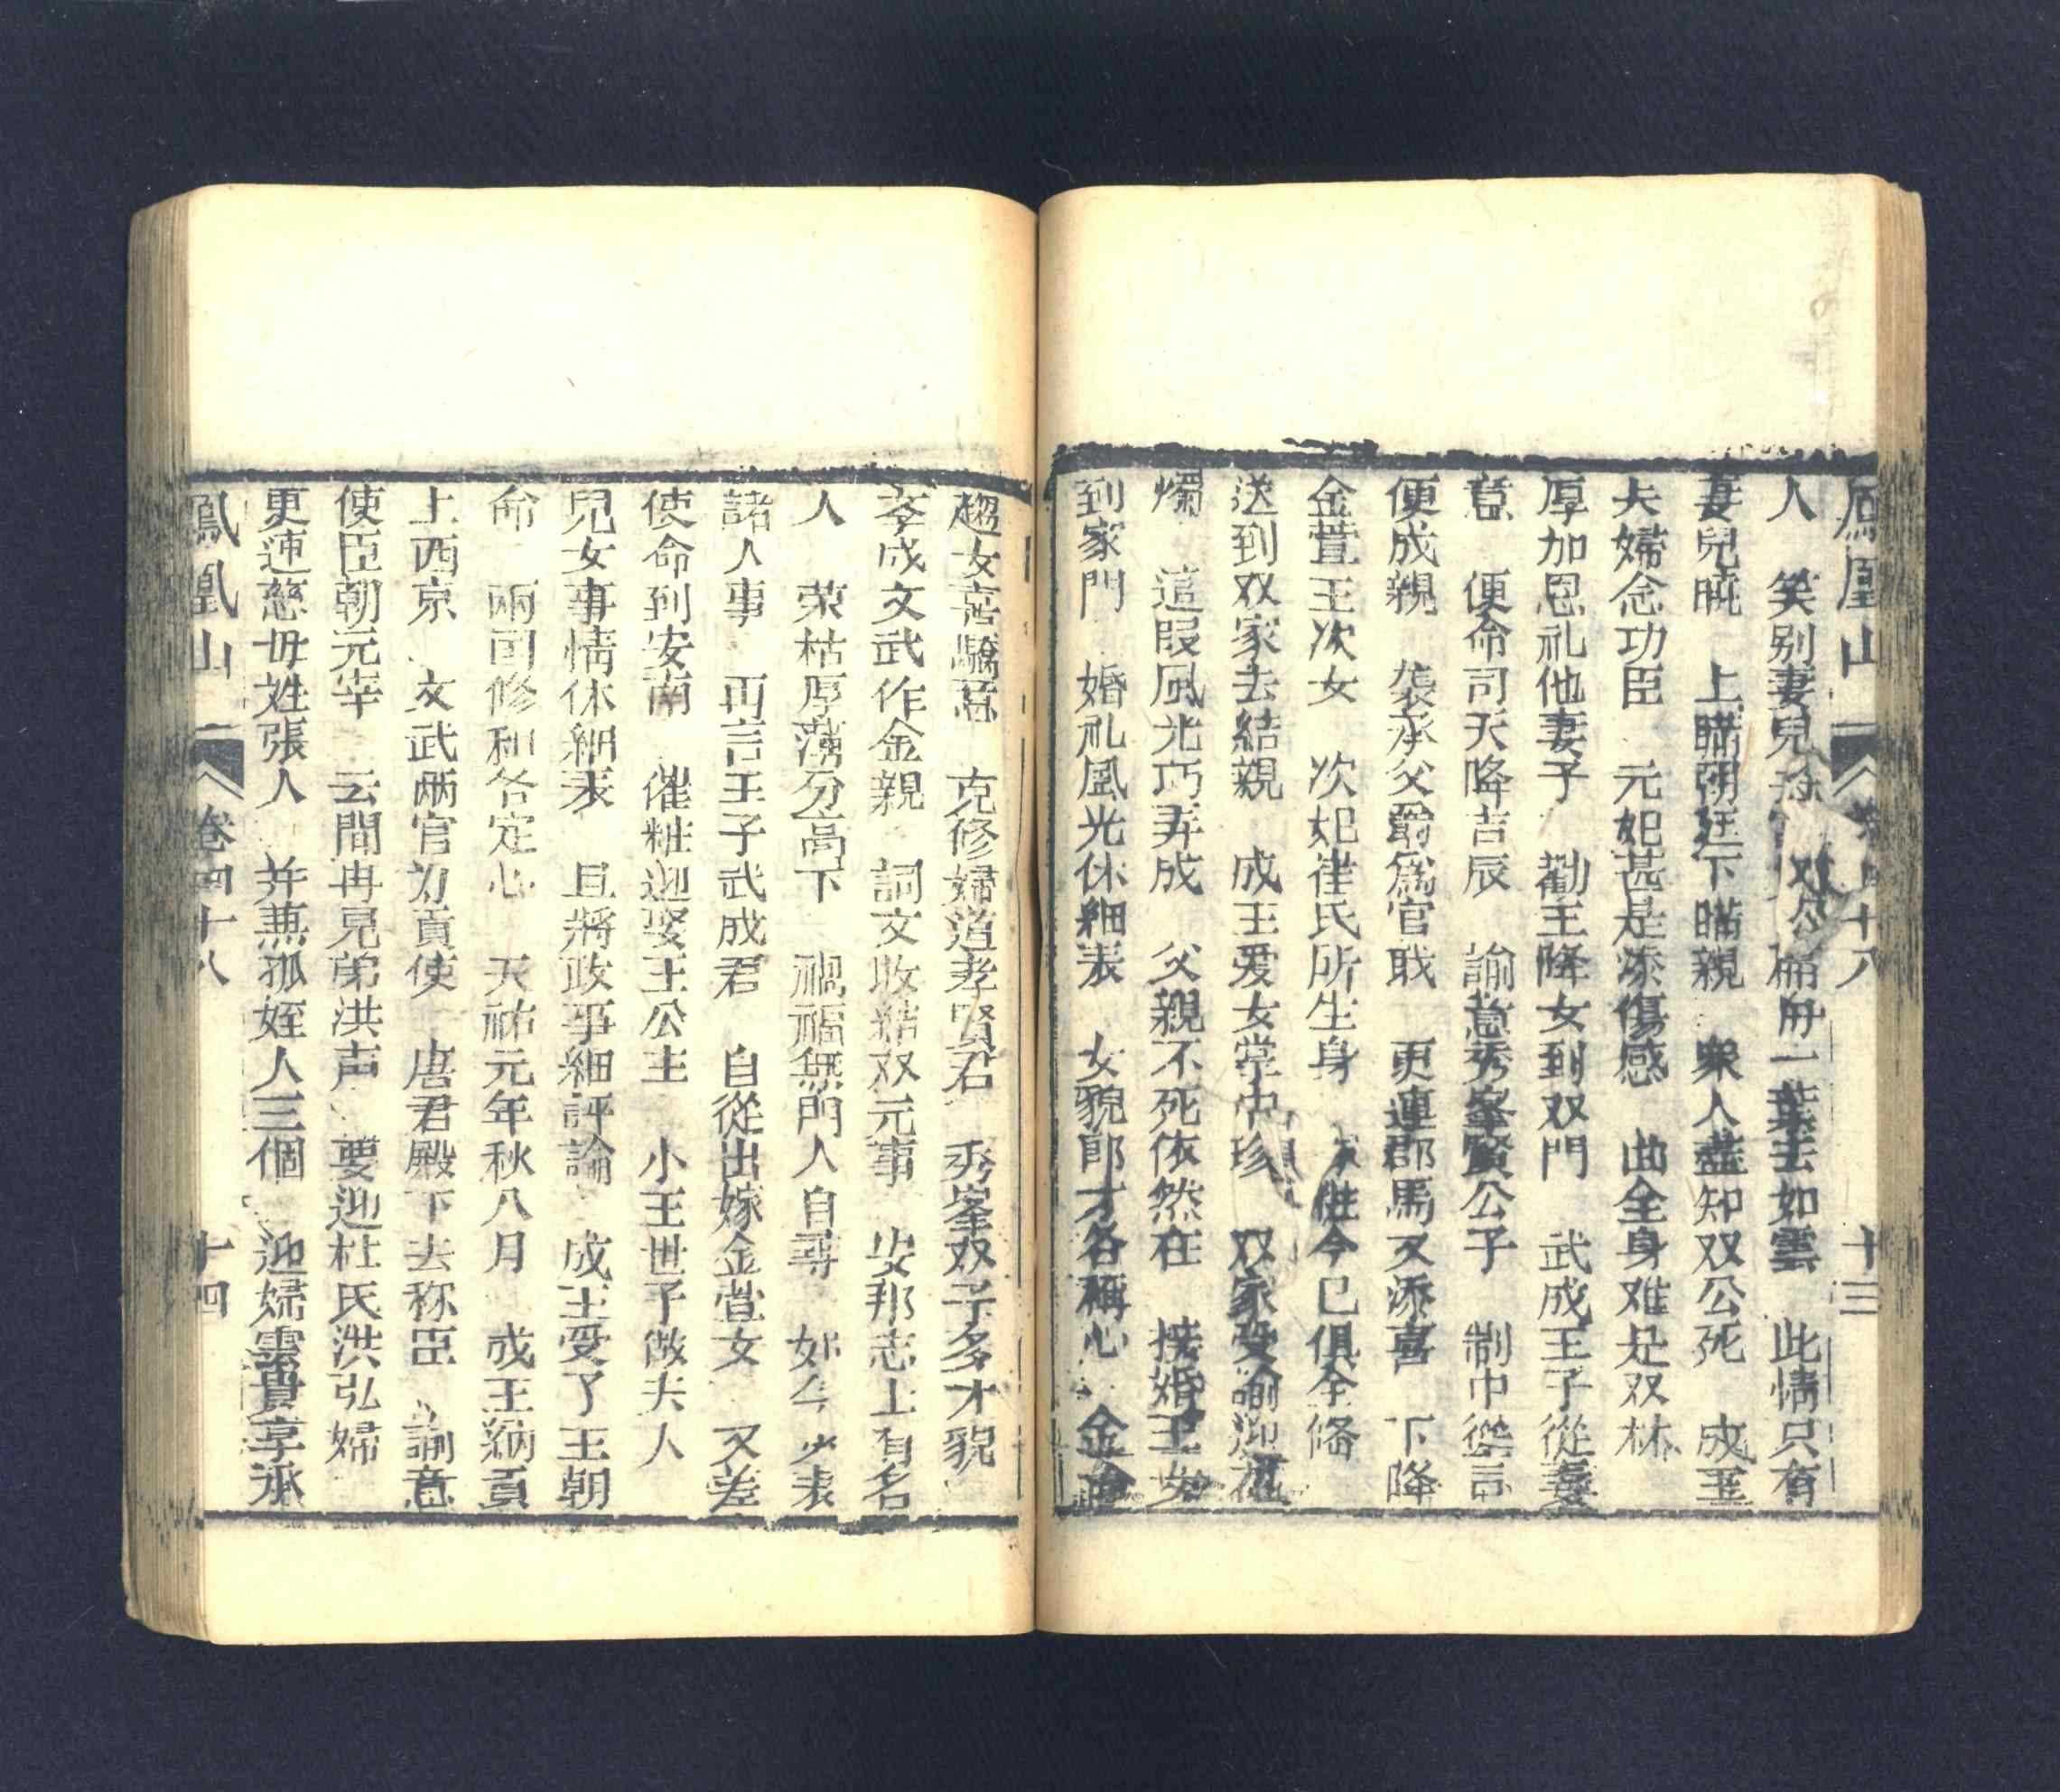 鳳凰山 卷四十八 十三
人 笑别妻兒 一葉去如雲 此情只有
妻兒曉 上瞞朝廷下瞞親 衆人盡知双公死 成王
夫婦念功臣 元妃甚是添傷感 曲全身难是双林
厚加恩礼他妻子 勸王降女到双門 武成王子從妻
意 便命司天降吉辰 諭意秀峯賢公子 制中從言
便成親 襲承父爵爲官戢 更連郡馬又添喜 下降
金萱王次女 次妃崔氏所生身 今已俱全俻
送到双家去結親 成王爱女掌中珍 双家受諭迎花
燭 這叚風光巧弄成 父親不死依然在 接婚王女
到家門 婚礼風光休細表 女貌郎才各稱心 金
趨女喜驕意 克修婦道孝賢君 秀峯双子多才貌
孝成文武作金親 詞文收結双元事 安邦志上有名
人 荣枯厚薄分高下 禍福無門人自尋 如今少表
諸人事 再言王子武成君 自從出嫁金萱女 又差
使命到安南 催粧迎娶王公主 小王世子做夫人
兒女事情休細表 且將政事細評論 成王受了王朝
命 兩囬修和各定心 天祐元年秋八月 成王納貢
上西京 文武兩官为貢使 唐君殿下去称臣 諭意
使臣朝元宰 云間冉見弟洪声 要迎杜氏洪弘婦
更連慈母姓張人 并兼孤姪人三個 迎婦雲貴享承
鳳凰山 卷四十八 十四